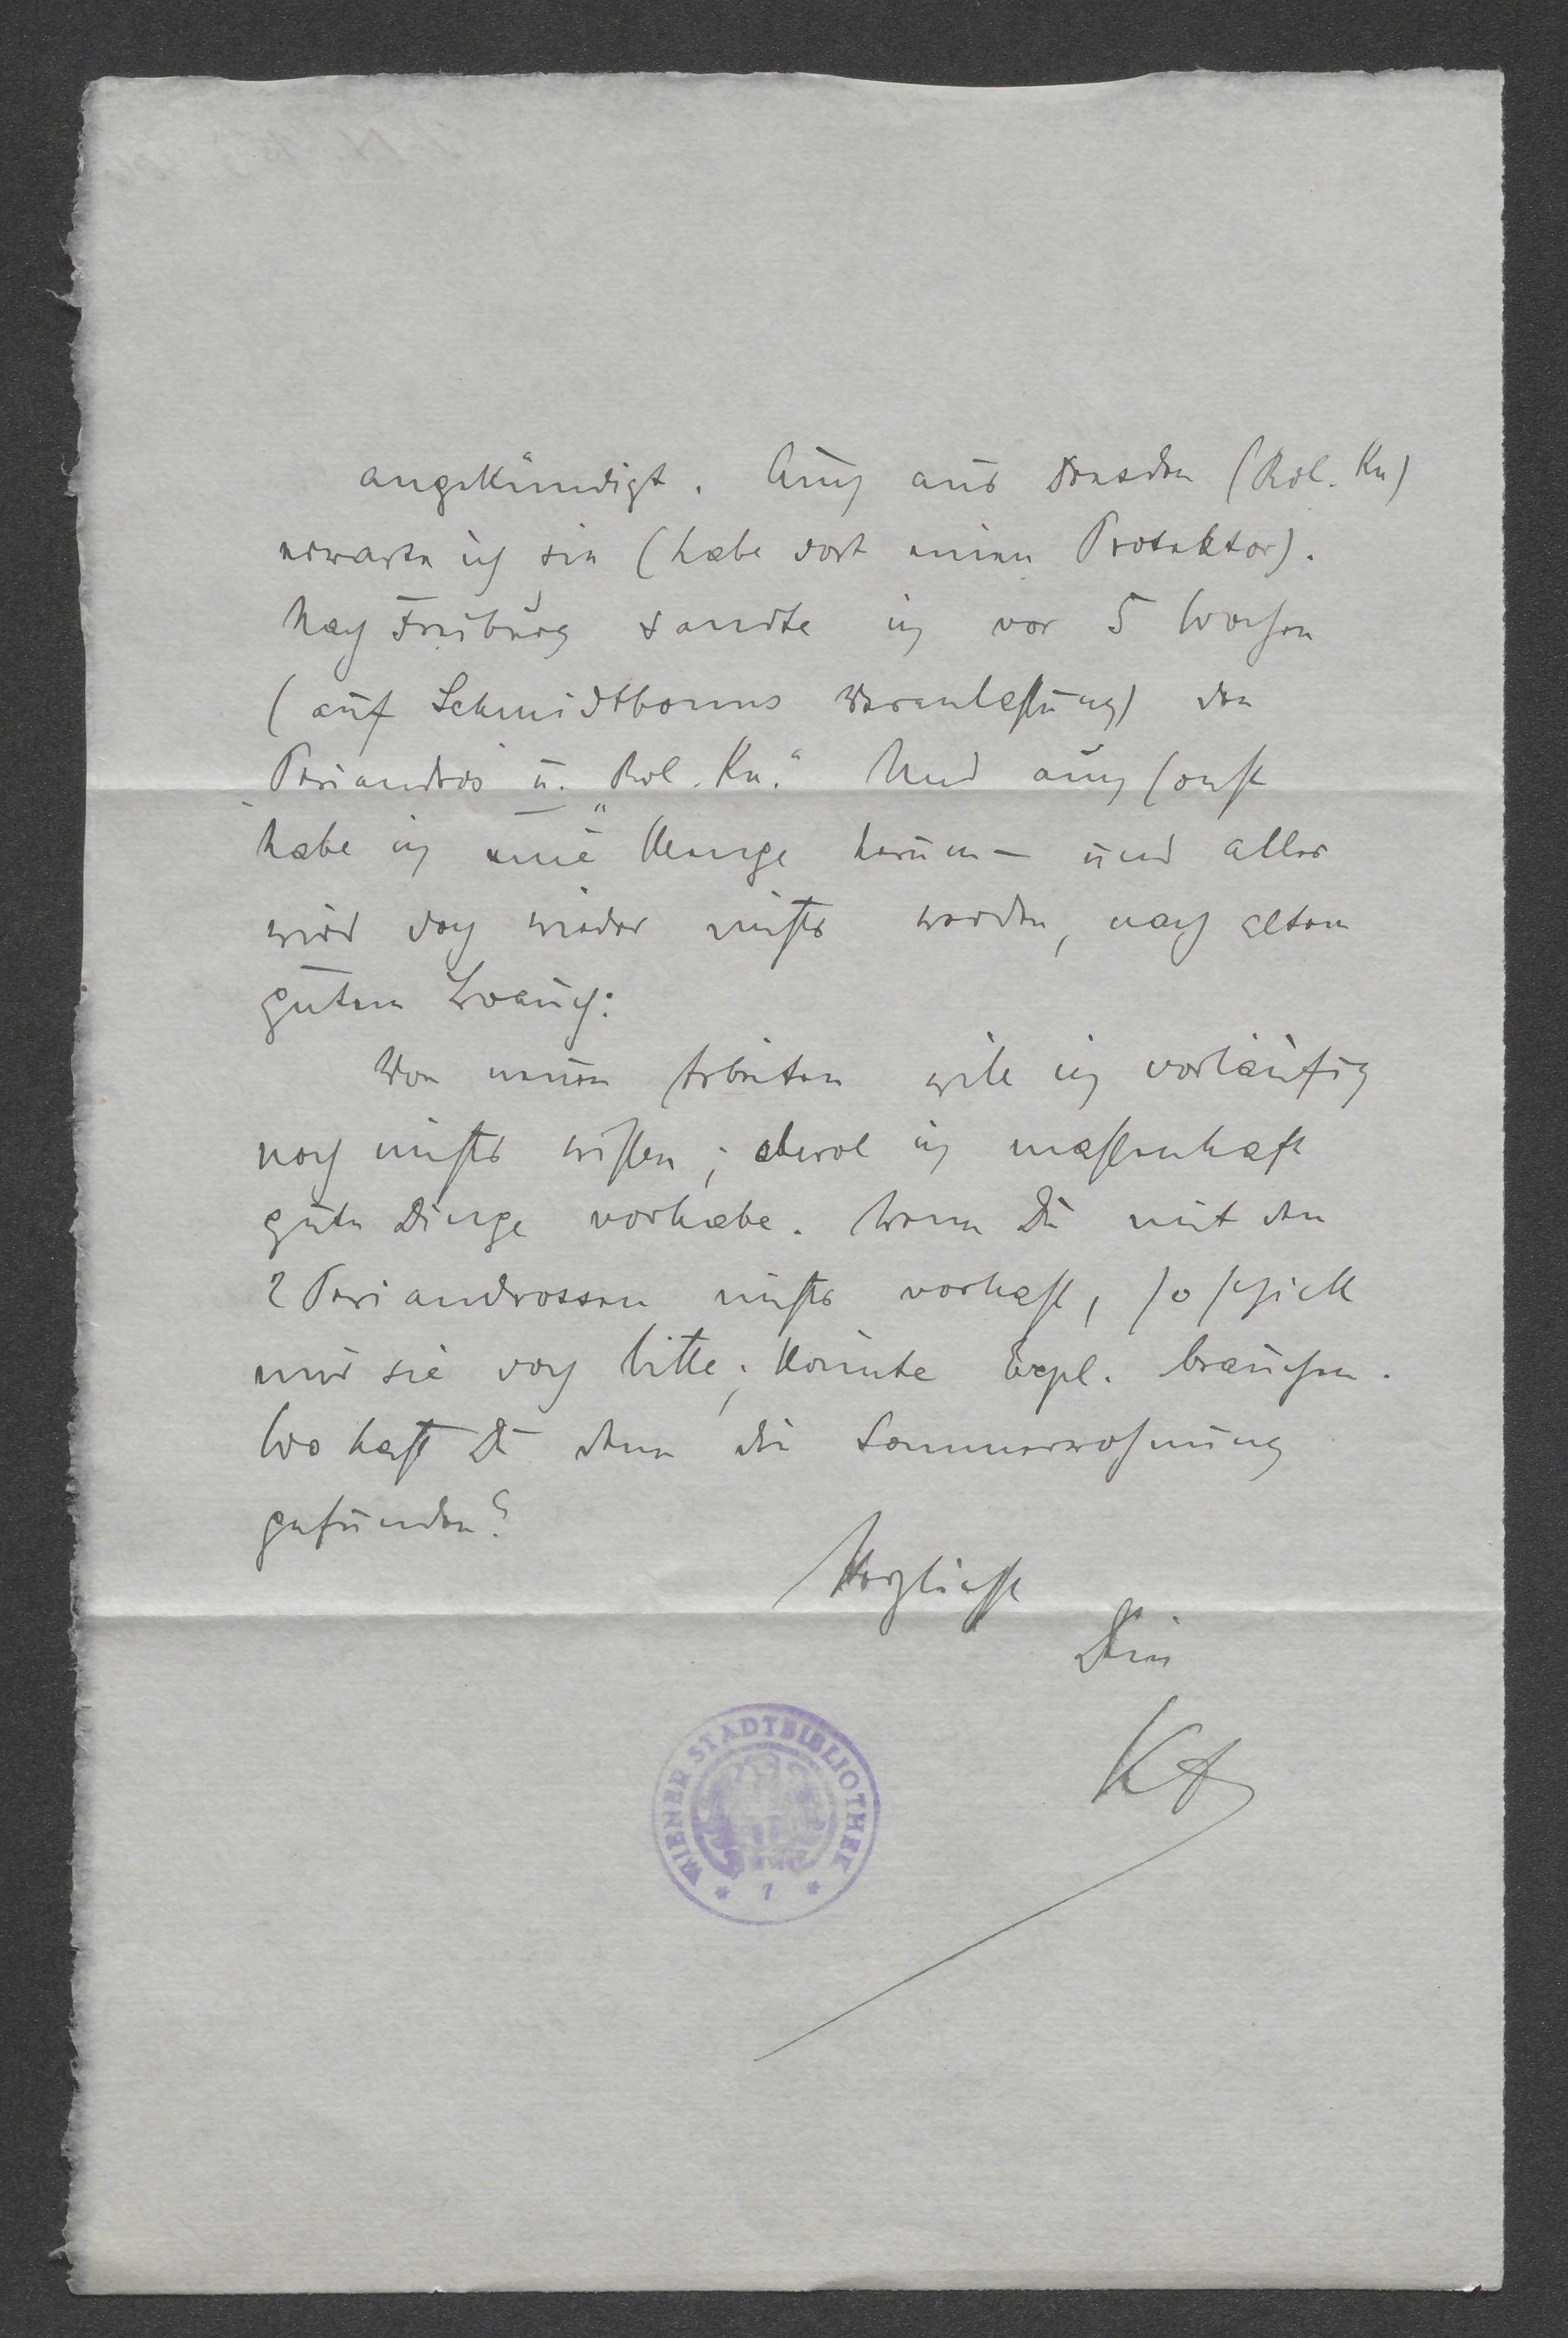 angekündigt. Auch aus Dresden (Rol. Kn)
erwarte ich sie (habe dort einen Protektor).
Nach Freiburg sandte ich vor 5 Wochen
(auf Schmidtbonns Veranlassung) den
Periandros u. „Rol. Kn.“ Und auch sonst
habe ich eine Menge herum – und alles
wird doch wieder nichts werden, nach altem
gutem Brauch.
Von neuen Arbeiten will ich vorläufig
noch nichts wissen; obwol ich massenhaft
gute Dinge vorhabe. Wenn Du mit den
2 Periandrossen nichts vorhast, so schick
mir sie doch bitte; könnte Expl. brauchen.
Wo hast Du denn die Sommerwohnung
gefunden?
Herzlichst
Dein
WIENER STADTBIBLIOTHEK
* 7 *